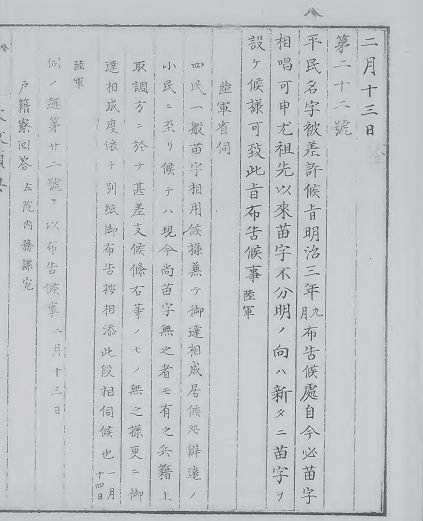 二月十三日
第二十二號
平民苗字被差許候旨明治三年九月布告候處自今必苗字
相唱可申尤祖先以來苗字不分明ノ向ハ新タニ苗字ヲ
設ケ候樣可致此旨布告候事 陸軍
陸軍省伺
四民一般苗字相用候樣兼テ御達相成居候処僻遠ノ
小民ニ至リ候テハ現今尚苗字無之者モ有之兵籍上
取調方ニ於テ甚差支候條右等ノモノ無之樣更ニ御
達相成度依テ別紙御布告按相添此段相伺候也 一月十四日
陸軍
伺ノ趣第廿二號ヲ以布告候事 二月十三日
戸籍寮回答 左院内務課宛